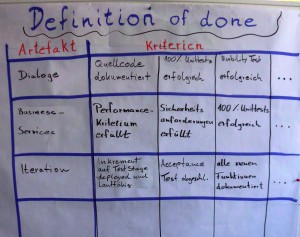 Definition of done
Artefakt Kriterien
Dialoge
Quellcode
dokumentiert
100% Unittests
erfolgreich
Usability Test
erfolgreich
...
Business-
Services
Performance-
Kriterium
erfüllt
Sicherheits
anforderungen
erfüllt
100% Unittests
erfolgreich
...
Iteration
Inkrement
auf Test Stage
deployed und
lauffähig
Acceptance
Test abgeschl.
alle neuen
Funktionen
dokumentiert
...